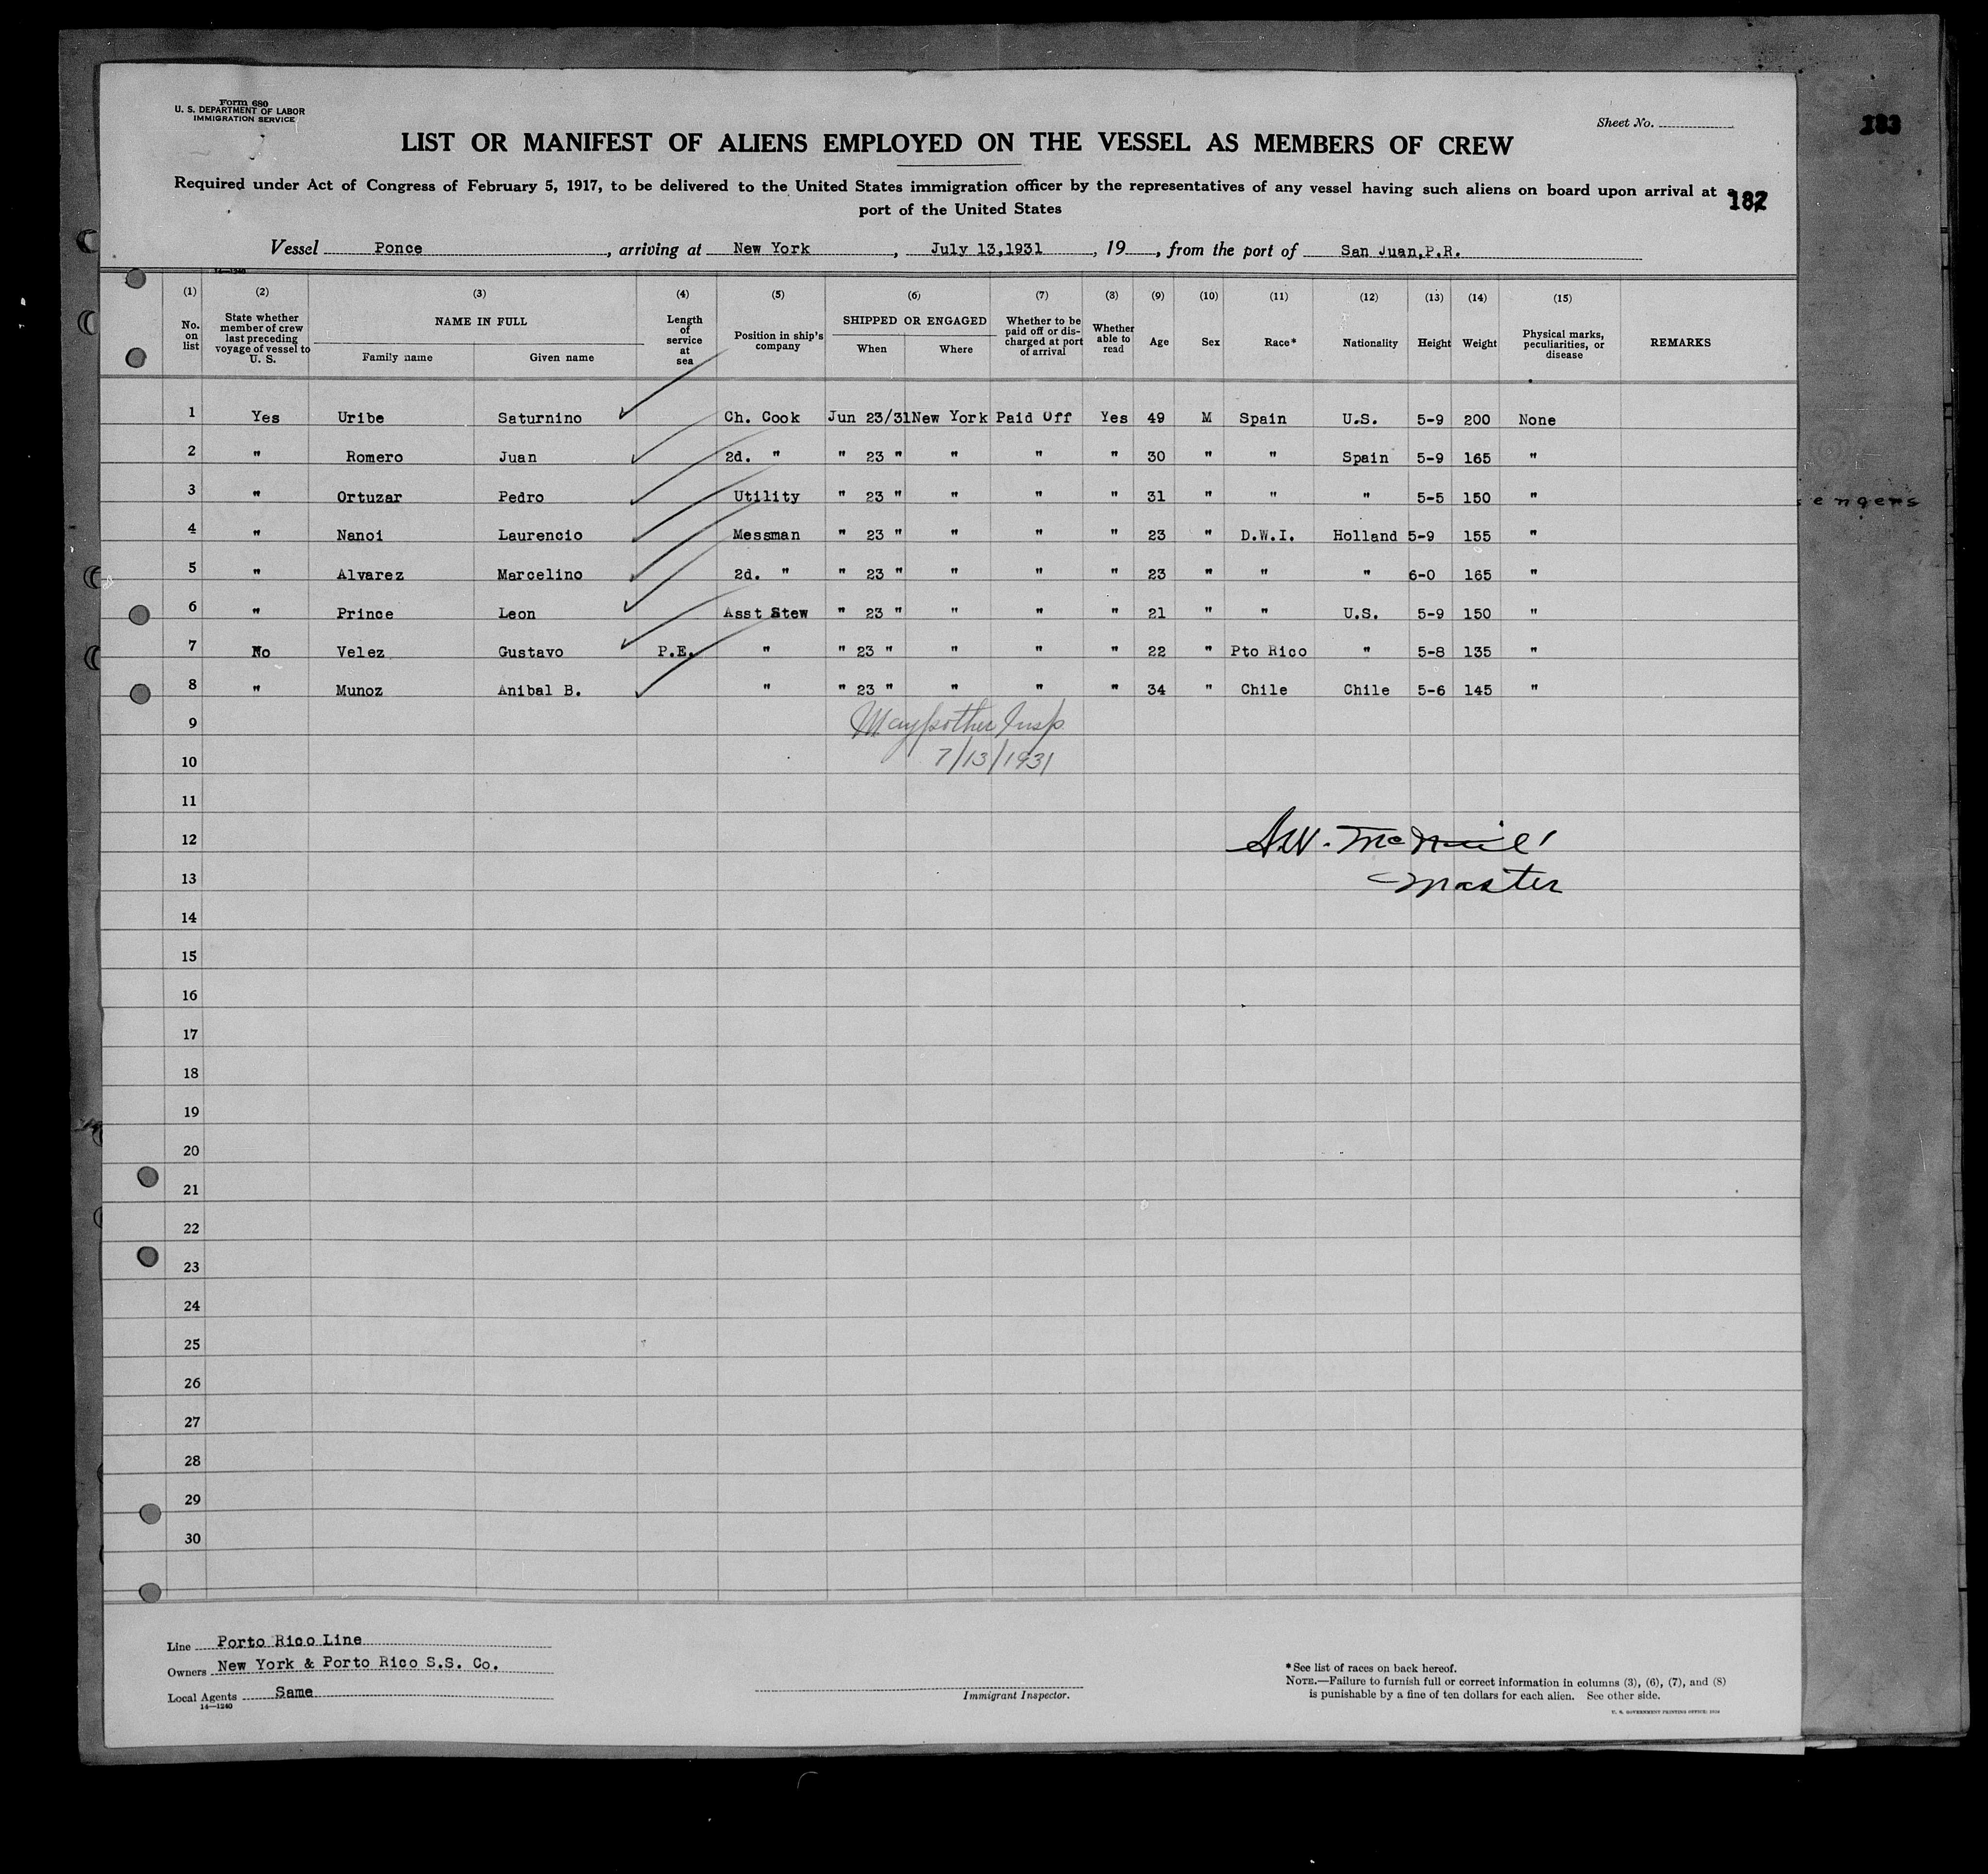 Form 680
U. S. DEPARTMENT OF LABOR
IMMIGRATION SERVICE
Sheet No.
183
LIST OR MANIFEST OF ALIENS EMPLOYED ON THE VESSEL AS MEMBERS OF CREW
Required under Act of Congress of February 5, 1917, to be delivered to the United States immigration officer by the representatives of any vessel having such aliens on board upon arrival at a
port of the United States
182
Vessel Ponce, arriving at New York, July 13,1931, 19, from the port of San Juan,P.R.
14—1240
(1) (2) (3) (4) (5) (6) (7) (8) (9) (10) (11) (12) (13) (14) (15)
No. on list
State whether member of crew last preceding voyage of vessel to U. S.
NAME IN FULL
Family name Given name
Length of service at sea
Position in ship's company
SHIPPED OR ENGAGED
When Where
Whether to be paid off or discharged at port of arrival
Whether able to read
Age Sex Race* Nationality Height Weight
Physical marks, peculiarities, or disease
REMARKS
1 Yes Uribe Saturnino Ch. Cook Jun 23/31 New York Paid Off Yes 49 M Spain U.S. 5-9 200 None
2 " Romero Juan 2d. " " 23 " " " " 30 " " Spain 5-9 165 "
3 " Ortuzar Pedro Utility " 23 " " " " 31 " " " 5-5 150 "
4 " Nanoi Laurencio Messman " 23 " " " " 23 " D.W.I. Holland 5-9 155 "
5 " Alvarez Marcelino 2d. " " 23 " " " " 23 " " " 6-0 165 "
6 " Prince Leon Asst Stew " 23 " " " " 21 " " U.S. 5-9 150 "
7 No Velez Gustavo P.E. " " 23 " " " " 22 " Pto Rico " 5-8 135 "
8 " Munoz Anibal B. " " 23 " " " " 34 " Chile Chile 5-6 145 "
9 Insp.
10 7/13/1931
11
12 McNeil
13 Master
14
15
16
17
18
19
20
21
22
23
24
25
26
27
28
29
30
sengers
Line Porto Rico Line
Owners New York & Porto Rico S.S. Co.
Local Agents Same
14—1240
Immigrant Inspector.
* See list of races on back hereof.
NOTE.—Failure to furnish full or correct information in columns (3), (6), (7), and (8)
is punishable by a fine of ten dollars for each alien. See other side.